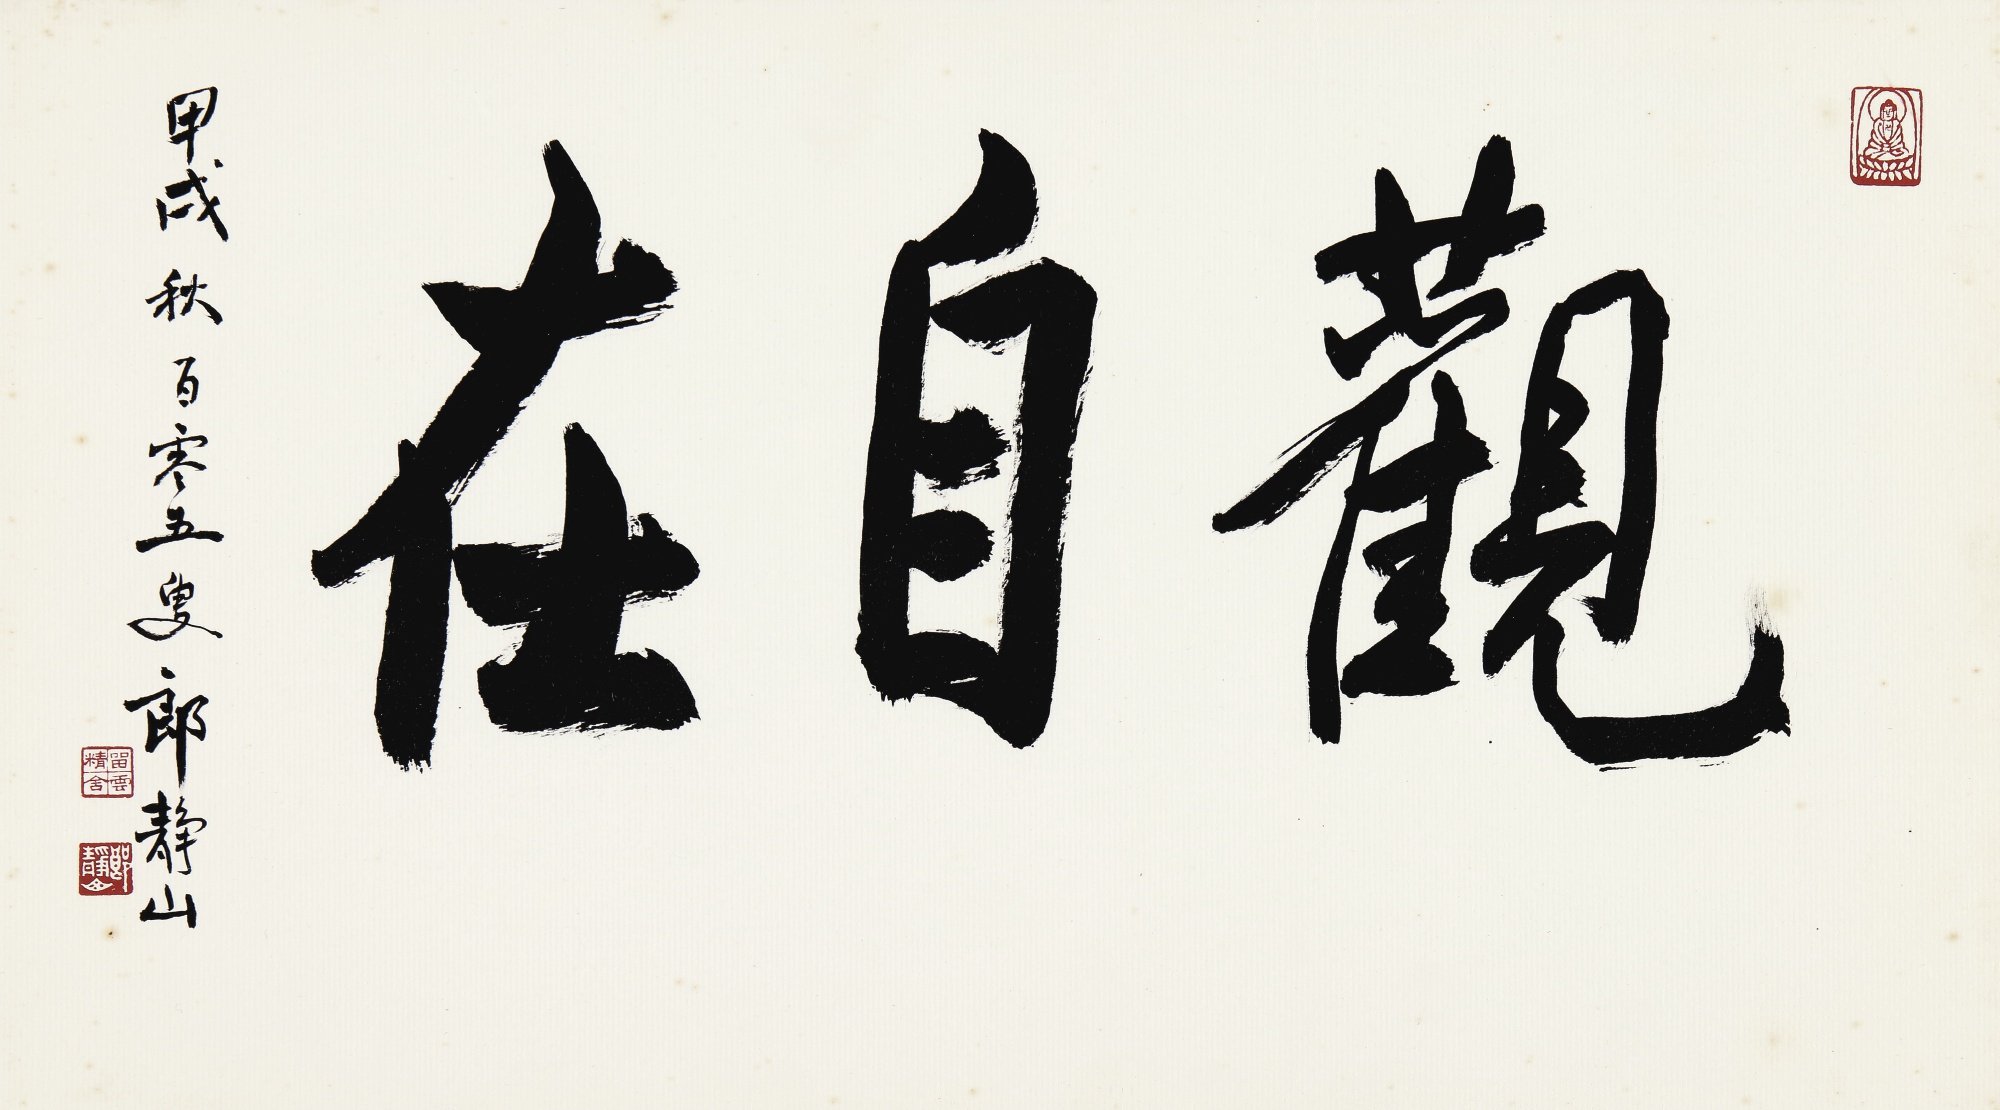 觀自在
甲戌秋百零五叟郎靜山
留雲精舍
郎靜山